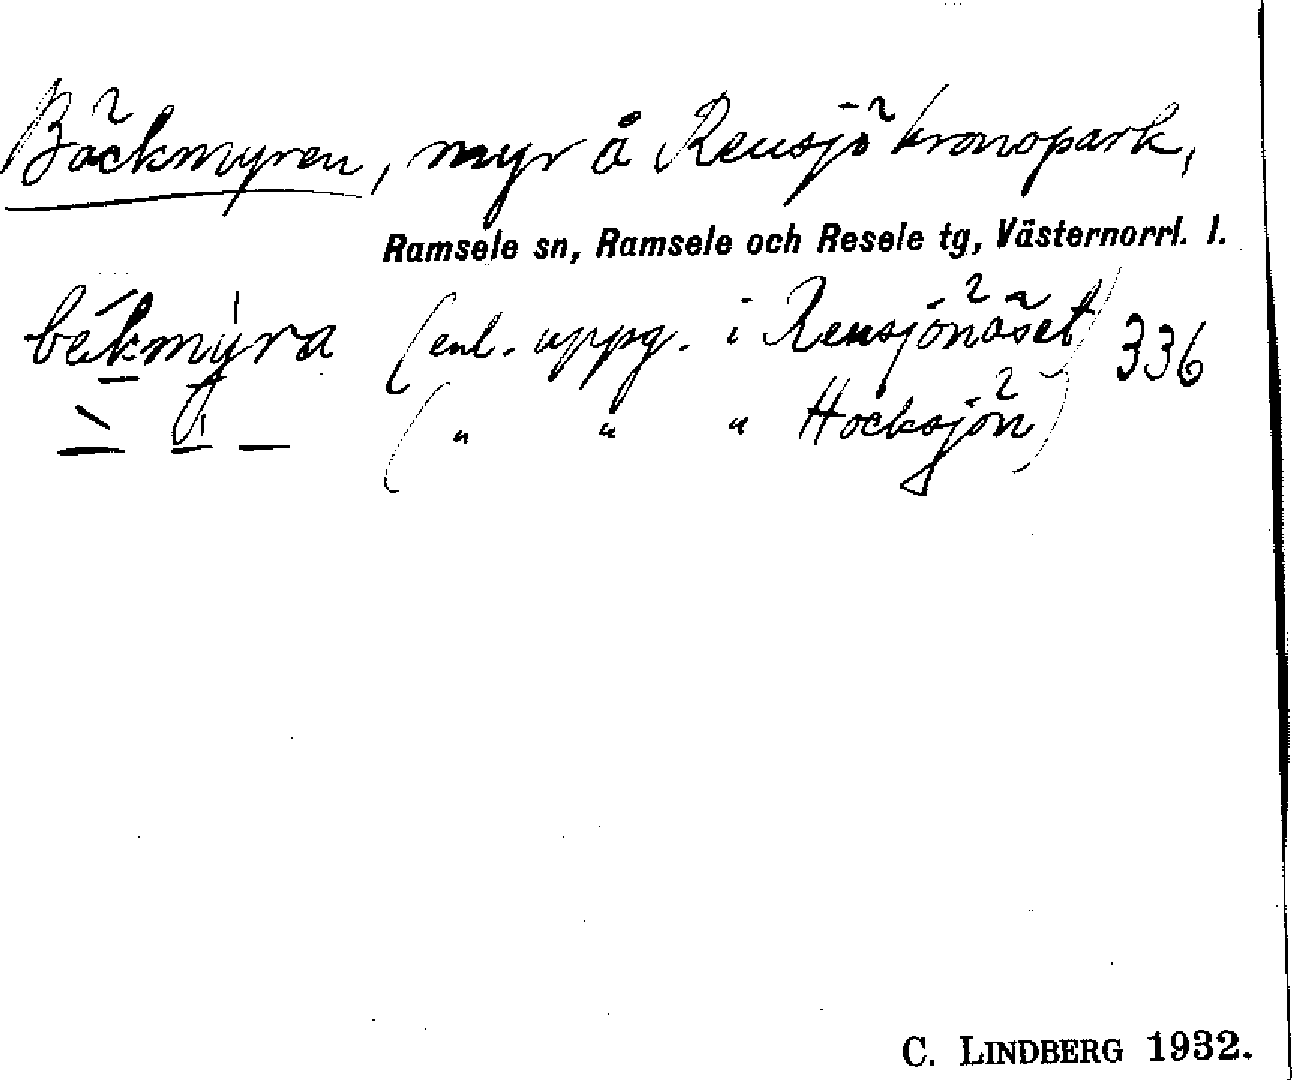 Bäckmyren, myr å Rensjö kronopark,
Ramsele sn, Ramsele och Resele tg, Västernorrl. l.
bekmyra (enl. uppg. i Rensjönäset) 336
(" " " Hocksjön)
C. LINDBERG 1932.